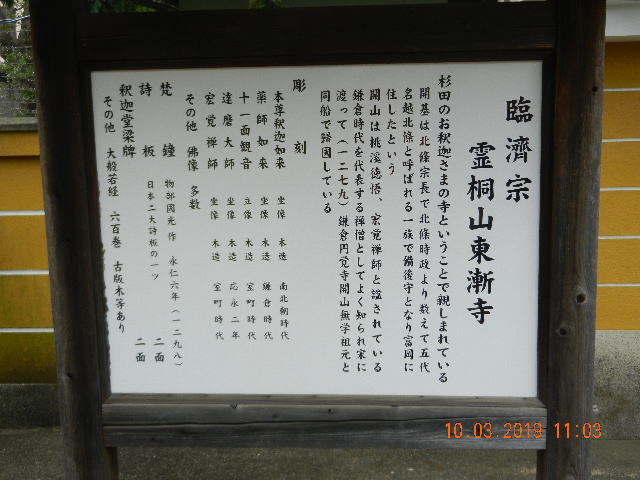 臨濟宗
霊桐山東漸寺
杉田のお釈迦さまの寺ということで親しまれている
開基は北條宗長で北條時政より数えて五代
名越北條と呼ばれる一族で備後守となり富岡に
住したという
開山は桃溪徳悟、宏覚禅師と諡されている
鎌倉時代を代表する禅僧としてよく知られ宋に
渡って(一二七九)鎌倉円覚寺開山無学祖元と
同船で帰国している
彫刻
本尊釈迦如来 坐像 木造 南北朝時代
薬師如来 坐像 木造 鎌倉時代
十一面観音 立像 木造 室町時代
達磨大師 坐像 木造 応永二年
宏覚禅師 坐像 木造 室町時代
その他 佛像 多数
梵鐘 物部國光作 永仁六年(一二九八)
詩板 日本二大詩板の一ツ 二面
釈迦堂梁牌 二面
その他 大般若経 六百巻 古版木等あり
10.03.2019 11:03